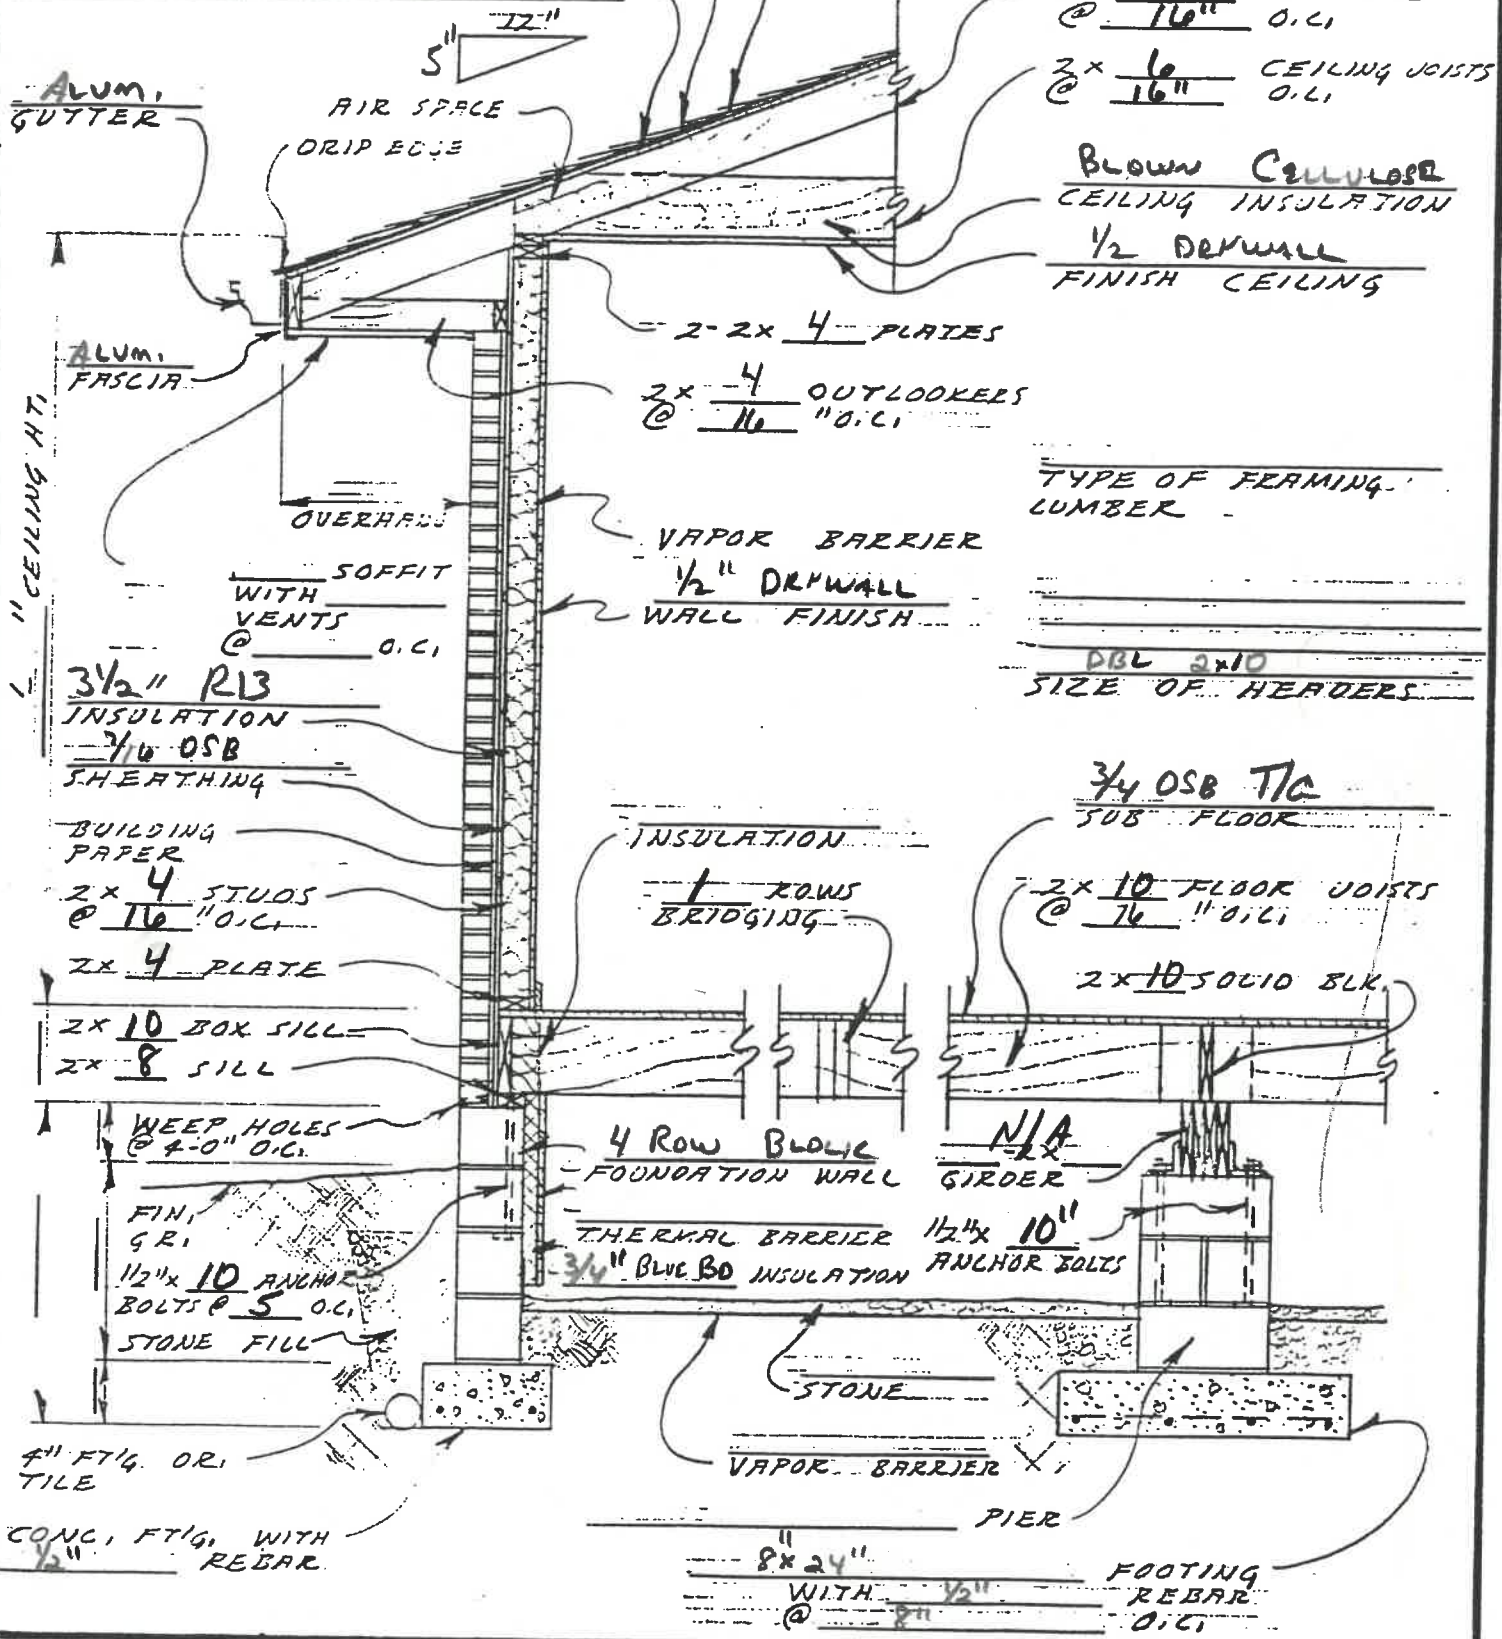 12"
5"
@ 16" O.C.
2 x 6 CEILING JOISTS
@ 16" O.C.
ALUM.
GUTTER
AIR SPACE
DRIP EDGE
BLOWN CELLULOSE
CEILING INSULATION
1/2 DRYWALL
FINISH CEILING
5
2-2x 4 PLATES
ALUM.
FASCIA
2x 4 OUTLOOKERS
@ 16 "O.C.
" CEILING HT.
TYPE OF FRAMING
LUMBER
OVERHANG
VAPOR BARRIER
1/2" DRYWALL
WALL FINISH
SOFFIT
WITH
VENTS
@ O.C.
DBL 2x10
SIZE OF HEADERS
3 1/2" R13
INSULATION
7/16 OSB
SHEATHING
3/4 OSB T/G
SUB FLOOR
BUILDING
PAPER
INSULATION
2x 4 STUDS
@ 16 "O.C.
1 ROWS
BRIDGING
2x 10 FLOOR JOISTS
@ 16 "O.C.
2x 4 PLATE
2x 10 SOLID BLK.
2x 10 BOX SILL
2x 8 SILL
WEEP HOLES
@ 4-0" O.C.
4 ROW BLOCK
FOUNDATION WALL
N/A
2x
GIRDER
FIN.
GR.
THERMAL BARRIER
3/4" BLUE BD INSULATION
1/2"x 10"
ANCHOR BOLTS
1/2"x 10 ANCHOR
BOLTS @ 5 O.C.
STONE FILL
STONE
4" FT'G. DR.
TILE
VAPOR BARRIER
CONC. FT'G. WITH
1/2" REBAR
PIER
8"x24" FOOTING
WITH 1/2" REBAR
@ 8" O.C.